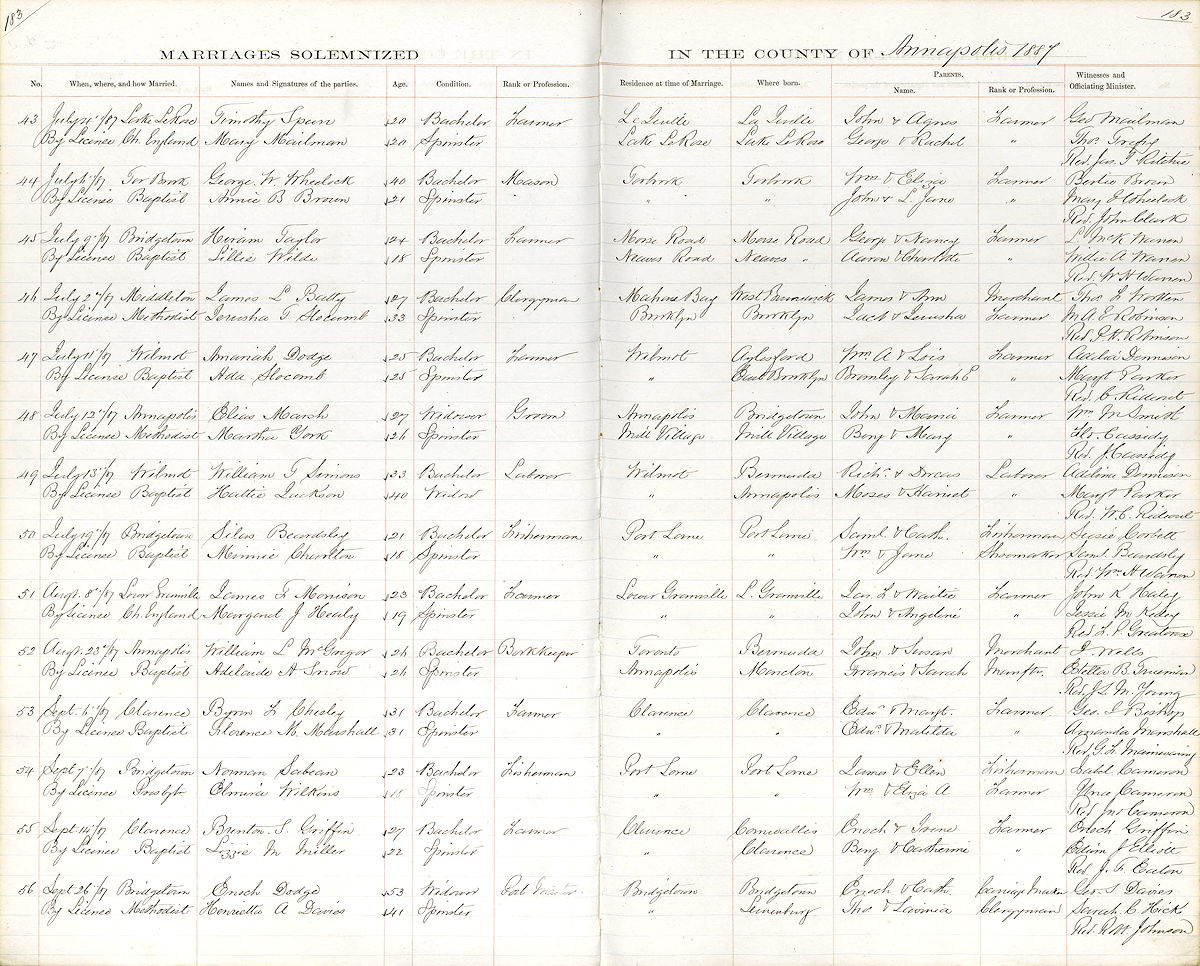 183
183
MARRIAGES SOLEMNIZED IN THE COUNTY OF Annapolis 1887
PARENTS.
No. When, where, and how Married. Names and Signatures of the parties. Age. Condition. Rank or Profession. Residence at time of Marriage. Where born. Name. Rank or Profession. Witnesses and Officiating Minister.
43 Lake LeRose Timothy 20 Bachelor Farmer John & Agnes Farmer Geo Mailman
By License Ch. England Mary Mailman 20 Spinster Lake LeRose Lake LeRose George & Rachel " Thos.
Rev. Jas. J Ritchie
44 Tor Brook George W. Wheelock 40 Bachelor Mason Torbrook Torbrook Wm & Eliza Farmer Bertie Brown
By License Baptist Annie B Brown 21 Spinster " " John & L. Jane " Mary J Wheelock
Rev. John Clark
45 July 9 /87 Bridgetown Hiram Taylor 24 Bachelor Farmer Morse Road Morse Road George & Nancy Farmer L McK Warren
By License Baptist Lillie Wilde 18 Spinster Neaves Road Neaves " Aaron & Charlotte " A Warren
Rev. W H Warren
46 July 2 /87 Middleton James L Batty 27 Bachelor Clergyman Mahone Bay West Brunswick James & Ann Merchant Thos. L
By License Methodist Jerusha T Slocomb 33 Spinster Brooklyn Brooklyn & Jerusha Farmer M A E Robinson
Rev. Robinson
47 July 11 /87 Wilmot Amariah Dodge 25 Bachelor Farmer Wilmot Aylesford Wm A & Lois Farmer Adelia Dennison
By License Baptist Ada Slocomb 25 Spinster " East Brooklyn Bromley & Sarah E " Margt Parker
Rev. C Rideout
48 July 12 /87 Annapolis Elias Marsh 27 Widower Groom Annapolis Bridgetown John & Maria Farmer Wm M Smith
By License Methodist Martha York 26 Spinster Mill Village Mill Village Benj & Mary " Cassidy
Rev. J. Cassidy
49 July 13 /87 Wilmot William T Simons 33 Bachelor Labour Wilmot Bermuda Richd. & Dorcas Labour Adelina Dennison
By License Baptist Hattie Jackson 40 Widow " Annapolis Moses & Harriet " Margt Parker
Rev. W. C. Rideout
50 July 19 /87 Bridgetown Silas Beardsley 21 Bachelor Fisherman Port Lorne Port Lorne Saml & Cath. Fisherman Susie Corbett
By License Baptist Minnie Charlton 18 Spinster " " Wm & Jane Shoemaker Saml Beardsly
Rev. Wm H Warren
51 Augt. 8 /87 Lower Granville James F Morrison 23 Bachelor Farmer Lower Granville L. Granville Jas. L & Farmer John K Healy
By License Ch. England Margaret J Healy 19 Spinster " " John & Angeline " Jessie M
Rev. F. P. Greatorex
52 Augt. 23 /87 Annapolis William L McGregor 26 Bachelor Bookkeeper Toronto Bermuda John & Susan Merchant J Wells
By License Baptist Adelaide A Snow 26 Spinster Annapolis Moncton Francis & Sarah Manftr. Estella B. Freeman
Rev. J. L. M. Young
53 Sept. 1 /87 Clarence Byron L Chesley 31 Bachelor Farmer Clarence Clarence Edwd. & Margt. Farmer Geo. I Bishop
By License Baptist Florence M. Marshall 31 Spinster " " Edwd. & Matilda " Amanda Marshall
Rev. G. L. Mainwaring
54 Sept 7 /87 Bridgetown Norman Sabean 23 Bachelor Fisherman Port Lorne Port Lorne James & Ellen Fisherman Isabel Cameron
By License Presbyt. Elmira Wilkins 18 Spinster " " Wm & Eliza A Farmer Cameron
Rev Jno Cameron
55 Sept. 14 /87 Clarence Brenton S. Griffin 27 Bachelor Farmer Clarence Cornwallis Enoch & Irene Farmer Enoch Griffin
By License Baptist Lizzie M Miller 22 Spinster " Clarence Benj & Catherine " Edwin J Elliott
Rev. J. T. Eaton
56 Sept 26 /87 Bridgetown Enoch Dodge 53 Widower Post Master Bridgetown Bridgetown Enoch & Cath. Carriage Maker Geo. S Davies
By License Methodist Henrietta A Davies 41 Spinster " Lunenburg Thos & Lavinia Clergyman Sarah C. Hicks
Rev. Johnson